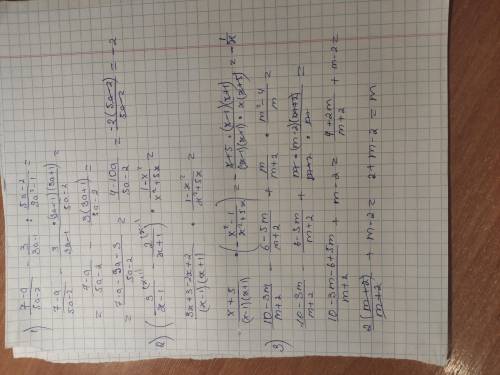 1) (7-a)/(5a-2) - 3/(3a-1) : (5a-2)/(9a²-1) =
(7-a)/(5a-2) - 3/(3a-1) · (3a-1)(3a+1)/(5a-2) =
= (7-a)/(5a-2) - 3(3a+1)/(5a-2) =
= (7-a-9a-3)/(5a-2) = (4-10a)/(5a-2) = -2(5a-2)/(5a-2) = -2
2) (3^(x+1)/(x-1) - 2^(x-1)/(x+1)) · (1-x²)/(x²+5x) =
(3x+3-2x+2)/((x-1)(x+1)) · (1-x²)/(x²+5x) =
(x+5)/((x-1)(x+1)) · (-(x²-1)/(x²+5x)) = -(x+5)·(x-1)(x+1)/((x-1)(x+1)·x(x+5)) = -1/x
3) (10-3m)/(m+2) - (6-5m)/(m+2) + m/(m+2) · (m²-4)/m =
(10-3m)/(m+2) - (6-5m)/(m+2) + m·(m-2)(m+2)/((m+2)·m) =
(10-3m-6+5m)/(m+2) + m-2 = (4+2m)/(m+2) + m-2 =
2(m+2)/(m+2) + m-2 = 2+m-2 = m